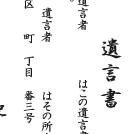 遺言書
遺言者　はこの遺言
。
遺言者　はその所
区　町　丁目　番三号